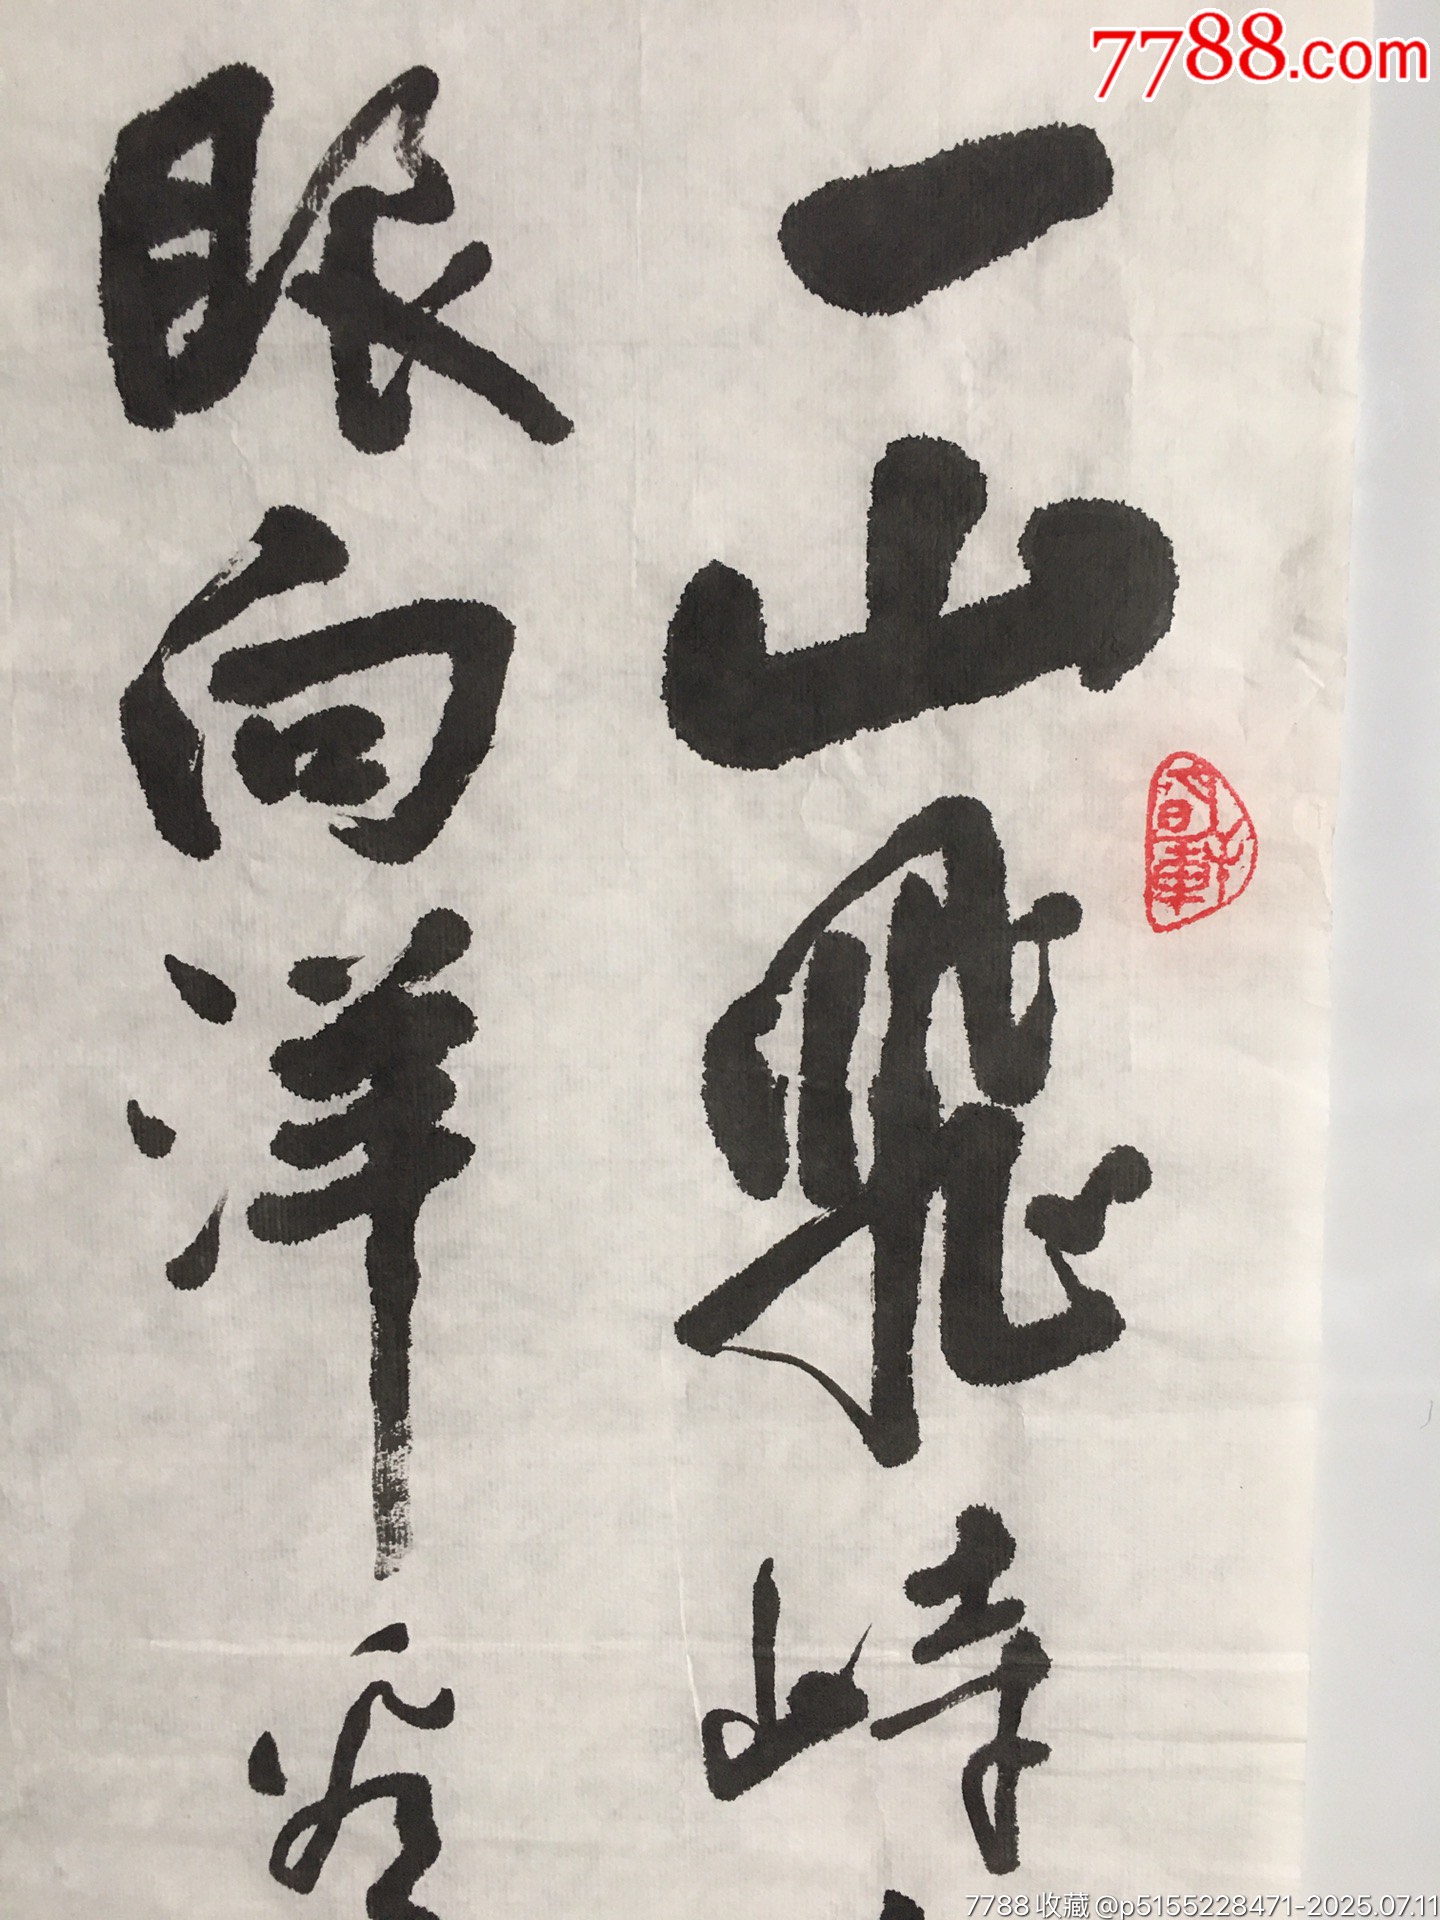 7788.com
一山飛峙
眼向洋看
7788收藏@p5155228471-2025.07.11